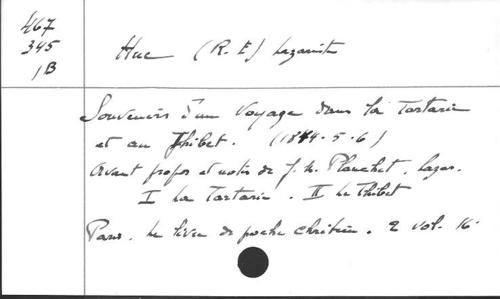 467
345
1B
Huc (R. E) Lazariste
Souvenirs d'un voyage dans la Tartarie
et au Thibet. (1844-5-6)
Avant propos et notes de J. M. Planchet, Lazar.
I La Tartarie. II Le Thibet
Paris. Le livre de poche chrétien. 2 vol. 16.